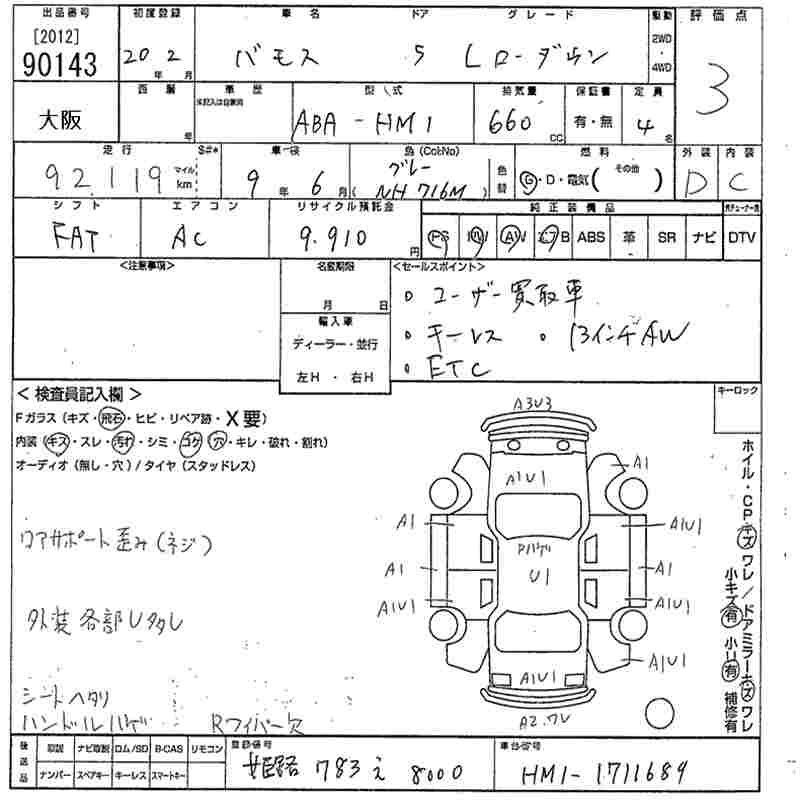 出品番号 初度登録 車名 ドア グレード 駆動 評価点
[2012]
90143 20年 2月 バモス 5 Lローダウン 2WD・4WD 3
大阪 西暦 年 車歴 未記入は自家用 型式 排気量 保証書 定員
ABA-HM1 660cc 有・無 4名
走行 S#* 車検 色(Col:No) 燃料 外装 内装
92,119 マイル km 9年 6月 グレー (NH 716M) 色替 G・D・電気( その他 ) D C
シフト エアコン リサイクル預託金 純正装備品
FAT AC 9,910円 PS PW AW エアB ABS 革 SR ナビ DTV
<注意事項> 名変期限 <セールスポイント>
月 日 ○ ユーザー買取車
輸入車 ○ キーレス ○ 13インチAW
ディーラー・並行 ○ ETC
左H・右H
< 検査員記入欄 > キーロック
Fガラス(キズ・飛石・ヒビ・リペア跡・X要)
内装(キズ・スレ・汚れ・シミ・コゲ・穴・キレ・破れ・割れ)
オーディオ(無し・穴)/タイヤ(スタッドレス)
A3U3
A1U1 A1
A1 A1U1
コアサポート歪み(ネジ) Pハゲ
A1 U1 A1
A1U1 A1U1
外装各部U多し
A1U1 A1U1
A2.ワレ
シートヘタリ
ハンドルハゲ Rワイパー欠
ホイル・CPキズワレ/ドアミラーキズワレ
小キズ有 小U有 補修有
後送品 取説 ナビ取説 ロム/SD B-CAS リモコン 登録番号 車台番号
ナンバー スペアキー キーレス スマートキー 姫路 783 え 8000 HM1-1711689